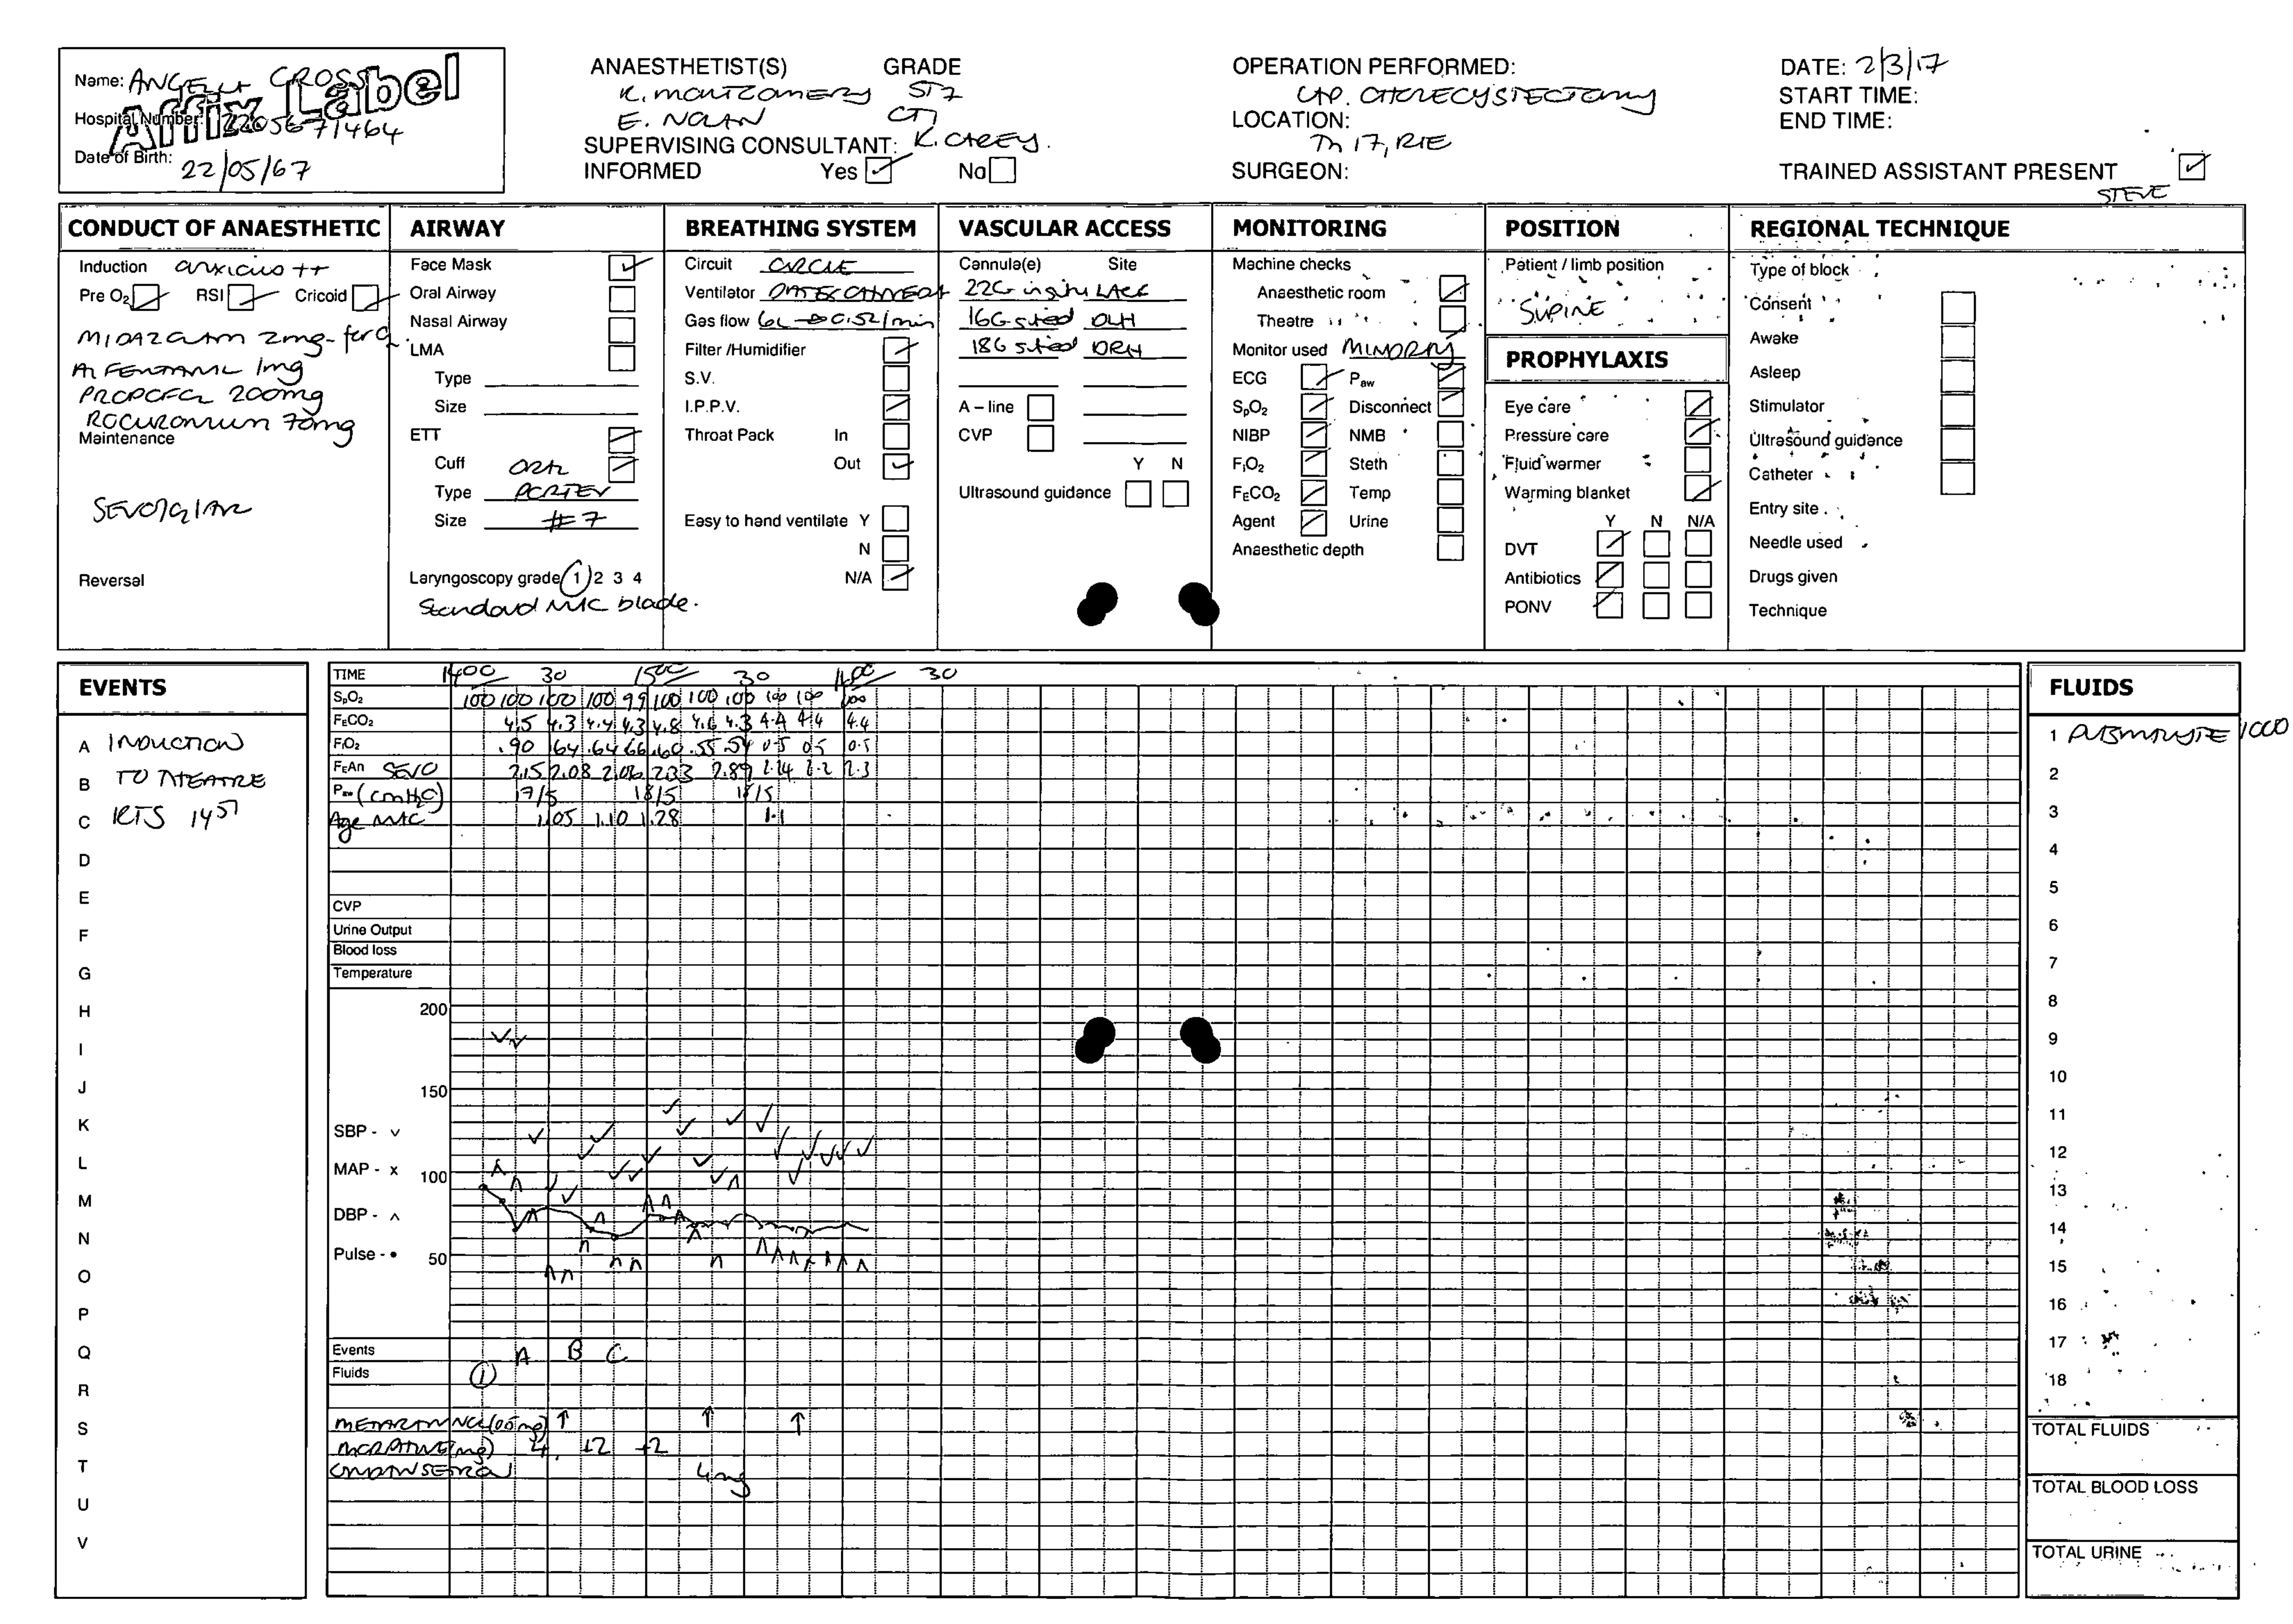 Name: ANGELA CROSS
Affix Label
Hospital Number: 2205671464
Date of Birth: 22/05/67
ANAESTHETIST(S) GRADE
K. MONTGOMERY ST7
E. NOLAN CT1
SUPERVISING CONSULTANT: K. CAREY.
INFORMED Yes No
OPERATION PERFORMED:
LAP. CHOLECYSTECTOMY
LOCATION:
Th 17, RIE
SURGEON:
DATE: 2/3/17
START TIME:
END TIME:
TRAINED ASSISTANT PRESENT
STEVE
CONDUCT OF ANAESTHETIC
Induction anxious ++
Pre O2 RSI Cricoid
MIDAZOLAM 2mg
ALFENTANIL 1mg
PROPOFOL 200mg
ROCURONIUM 70mg
Maintenance
Reversal
AIRWAY
Face Mask
Oral Airway
Nasal Airway
LMA
Type
Size
ETT
Cuff ORAL
Type PORTEX
Size #7
Laryngoscopy grade 1 2 3 4
Standard MAC blade.
BREATHING SYSTEM
Circuit CIRCLE
Ventilator
Gas flow 6L → 0.5L/min
Filter /Humidifier
S.V.
I.P.P.V.
Throat Pack In
Out
Easy to hand ventilate Y
N
N/A
VASCULAR ACCESS
Cannula(e) Site
22G in situ LACF
16G sited DLH
18G sited DRH
A – line
CVP
Y N
Ultrasound guidance
MONITORING
Machine checks
Anaesthetic room
Theatre
Monitor used MINDRAY
ECG Paw
SpO2 Disconnect
NIBP NMB
FiO2 Steth
FECO2 Temp
Agent Urine
Anaesthetic depth
POSITION
Patient / limb position
SUPINE
PROPHYLAXIS
Eye care
Pressure care
Fluid warmer
Warming blanket
Y N N/A
DVT
Antibiotics
PONV
REGIONAL TECHNIQUE
Type of block
Consent
Awake
Asleep
Stimulator
Ultrasound guidance
Catheter
Entry site
Needle used
Drugs given
Technique
EVENTS
A INDUCTION
B TO THEATRE
C KTS 1457
D
E
F
G
H
I
J
K
L
M
N
O
P
Q
R
S
T
U
V
TIME 1400 30 1500 30 30
SpO2 100 100 100 100 99 100 100 100 100 100 100
FECO2 4.5 4.3 4.4 4.3 4.8 4.6 4.3 4.4 4.4 4.4
FiO2 .90 .64 .64 .66 .60 .55 .54 0.5 0.5 0.5
FEAn SEVO 2.15 2.08 2.06 2.33 2.89 2.24 2.2 2.3
Paw (cmH2O) 17/5 18/5 18/5
Age MAC 1.05 1.10 1.28 1.1
CVP
Urine Output
Blood loss
Temperature
200
150
SBP - v
MAP - x
100
DBP - ʌ
Pulse - •
50
Events A B C
Fluids 1
METARAMINOL (0.5mg) ↑ ↑ ↑
MORPHINE (mg) 4 +2 +2
ONDANSETRON 4mg
FLUIDS
1 PLASMALYTE 1000
2
3
4
5
6
7
8
9
10
11
12
13
14
15
16
17
18
TOTAL FLUIDS
TOTAL BLOOD LOSS
TOTAL URINE